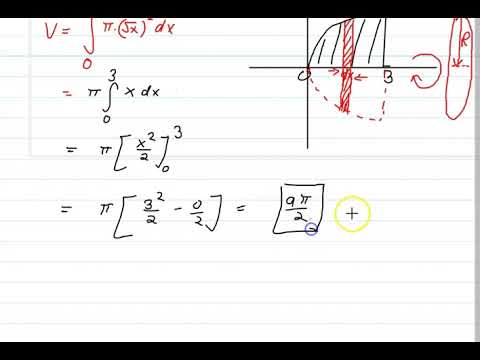 V = ∫₀ π·(√x)² dx
= π ∫₀³ x dx
= π [x²/2]₀³
= π [3²/2 − 0/2] = 9π/2
0 dx 3
R